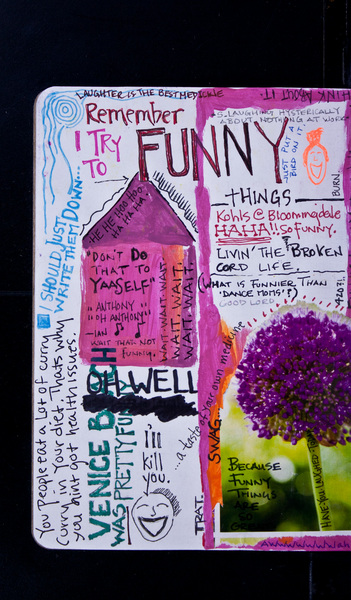 LAUGHTER IS THE BEST MEDICINE
THINK ABOUT IT.
Remember
I TRY
TO
FUNNY
THINGS
5. LAUGHING HYSTERICALLY
ABOUT NOTHING AT WORK
JUST PUT A
BIRD ON IT.
BURN.
I SHOULD JUST
WRITE THEM DOWN...
HE HE HOO HOO
HA HA HA
"DON'T DO
THAT TO
YAASELF"
"ANTHONY
OH ANTHONY"
-IAN
WAIT THAT NOT
FUNNY.
WAIT. WAIT. WAIT.
WAIT. WAIT.
Kohls @ Bloomingdale
HAHA!! So FUNNY.
LIVIN' THE BROKEN
CORD LIFE.
(WHAT IS FUNNIER THAN
'DANCE MOMS'?)
GOOD LORD
OH WELL
You people eat a lot of curry
curry in your diet. That's why
you bint got health issues.
VENICE
WAS PRETTY FUN
i'll
kill
you.
...a taste of your own medicine
SWAG...
TRAT.
BECAUSE
FUNNY
THINGS
ARE
HAVE YOU LAUGHED